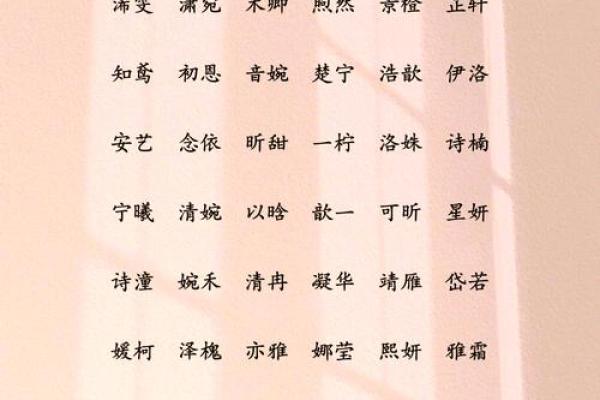 浠雯 潇宛 木卿 煦然 景橙 芷轩
知鸢 初恩 音婉 楚宁 浩歆 伊洛
安艺 念依 昕甜 一柠 洛姝 诗楠
宁曦 清婉 以晗 歆一 可昕 星妍
诗潼 婉禾 清冉 凝华 靖雁 岱若
媛柯 泽槐 亦雅 娜莹 熙妍 雅霜